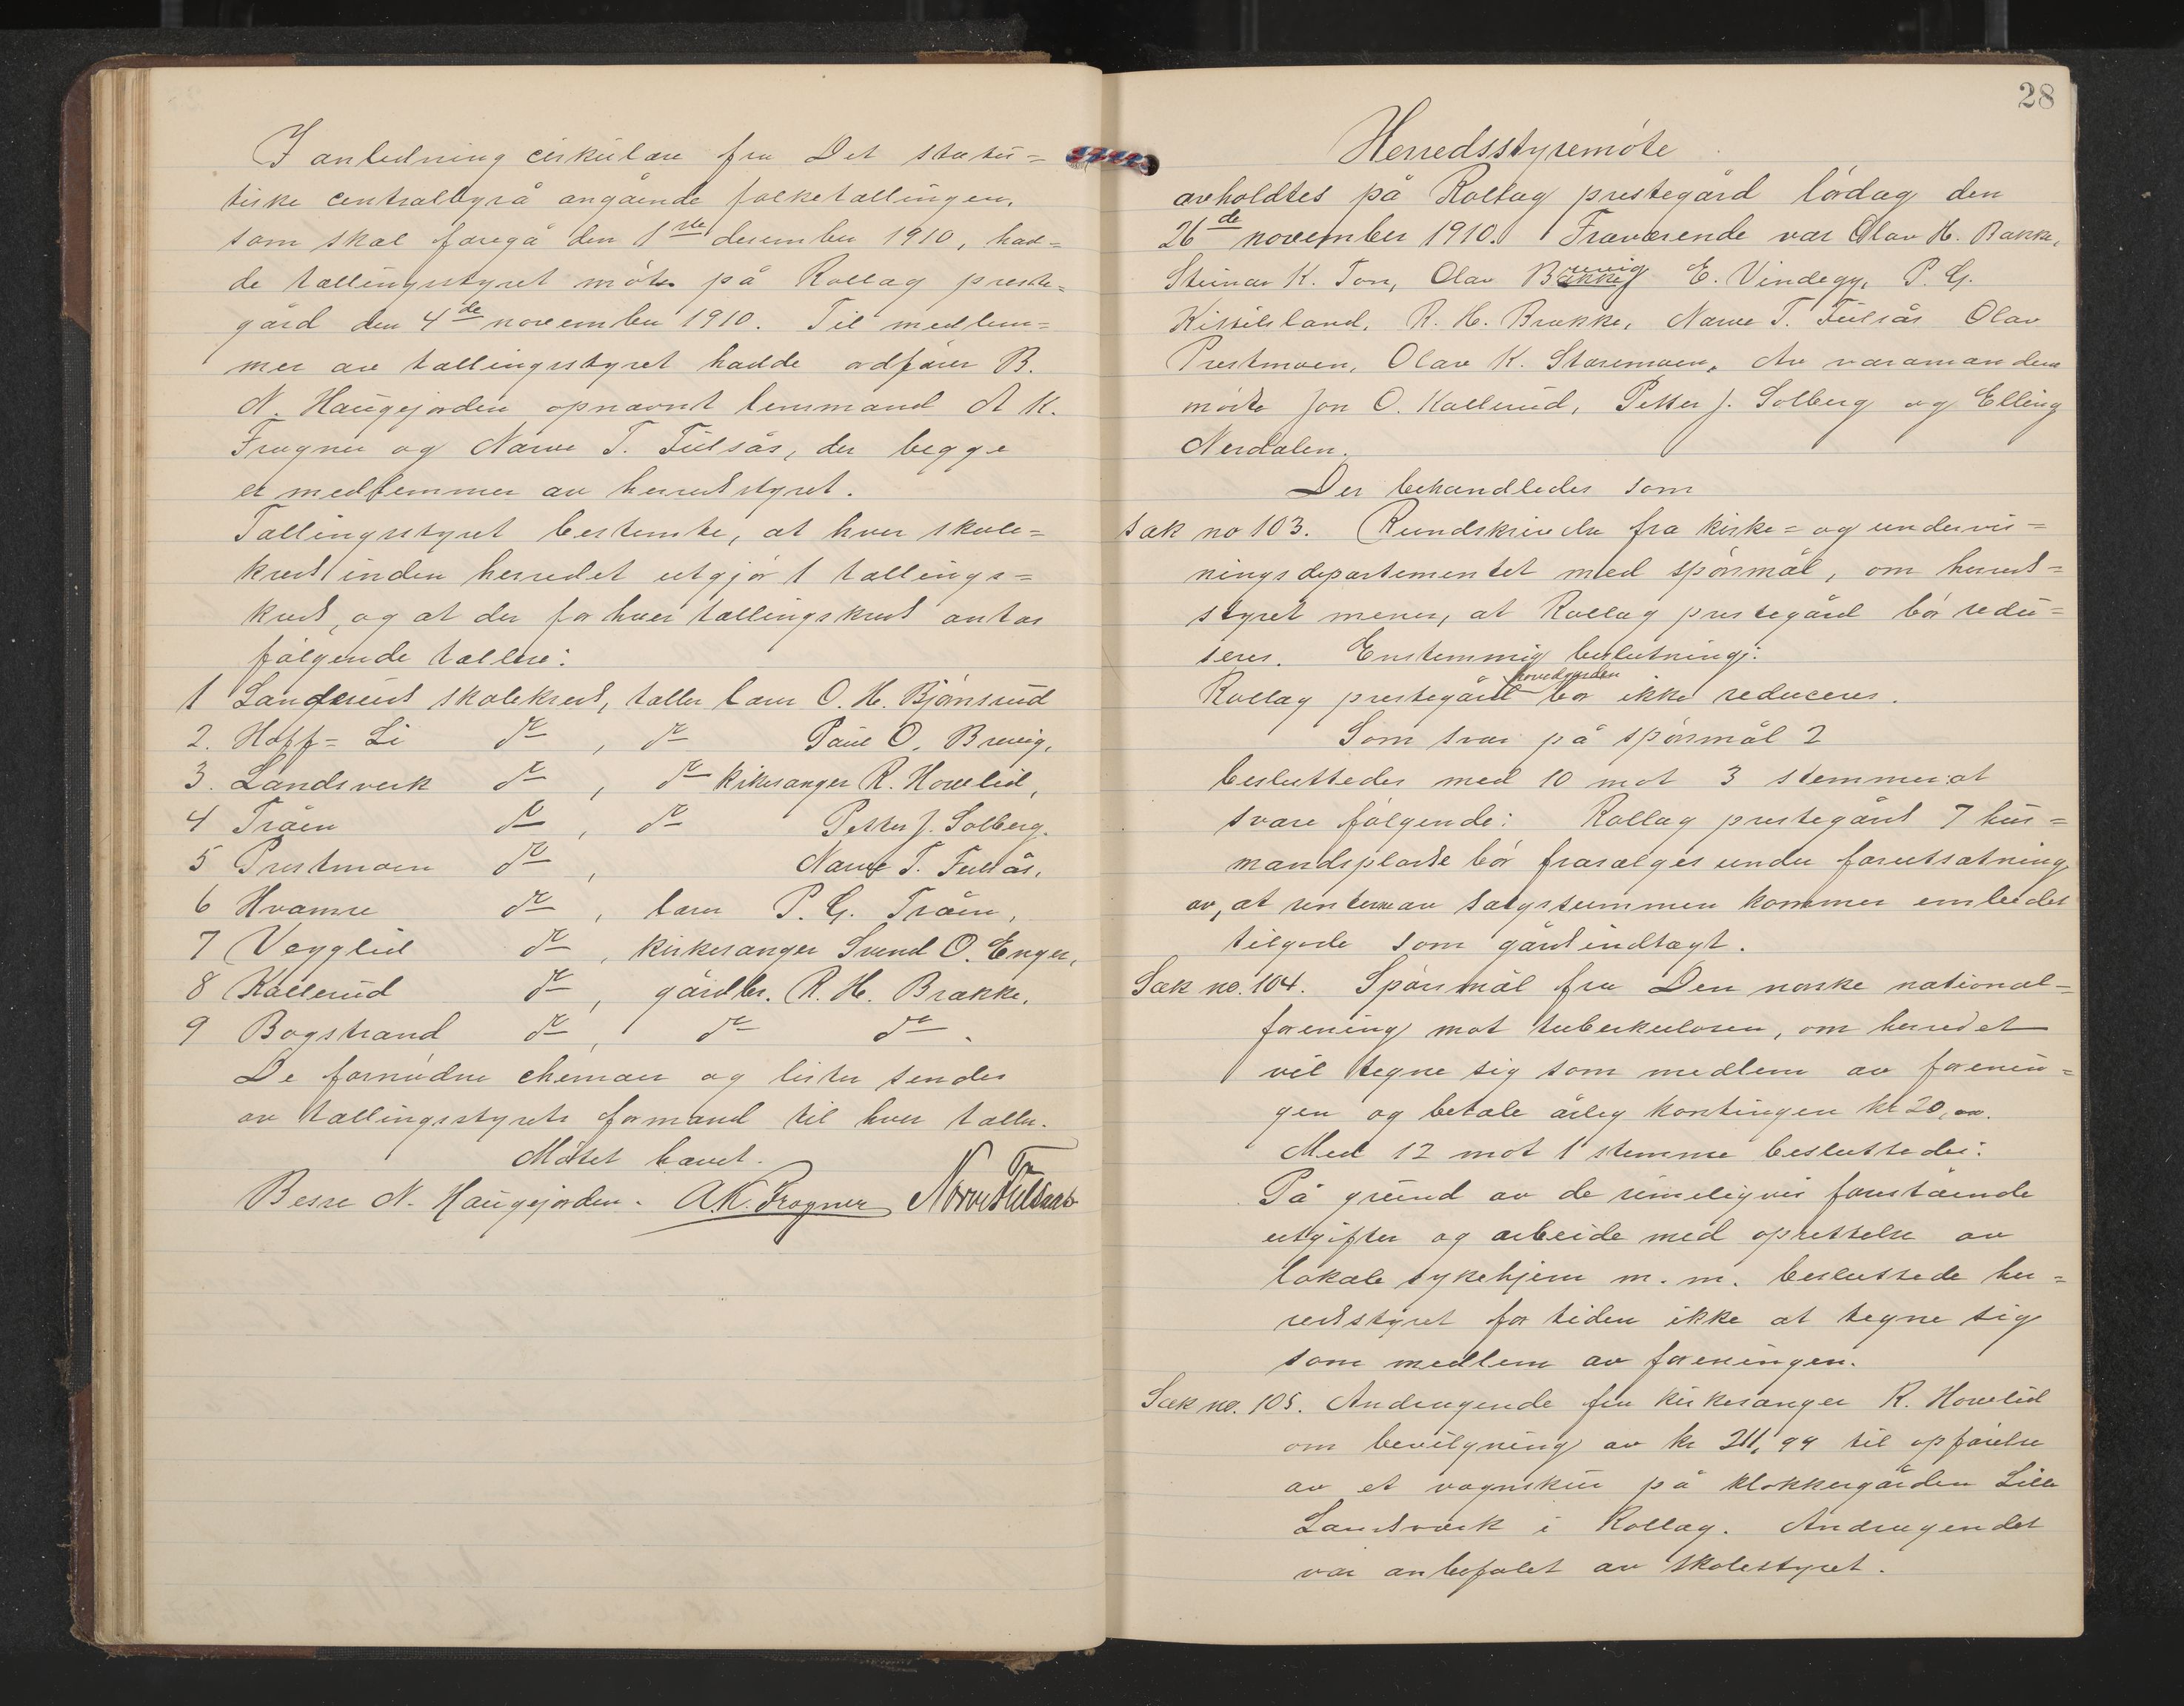 I anledning cirkulære fra Det statis=
tiske centralbyrå angående folketællingen,
som skal foregå den 1ste desember 1910, had=
de tællingsstyret møte på Rollag preste=
gård den 4de november 1910. Til medlem=
mer av tællingsstyret hadde ordfører B.
N. Haugejorden opnævnt lensmand A K.
Frogner og Narve T. Fulsås, der begge
er medlemmer av herredsstyret.
Tællingsstyret bestemte, at hver skole=
kreds inden herredet utgjør 1 tællings=
kreds, og at der for hver tællingskreds antas
følgende tællere:
1 Landsrud skolekreds, tæller lærer O. H. Bjørnsrud
2. Hoff= Li do , do Paul O. Brevig,
3. Landsverk do , do kirkesanger R. Hovelid,
4 Tråen do , do Petter J. Solberg.
5 Prestmoen do , Narve T. Fulsås,
6 Hvamre do , lærer P. G. Tråen,
7 Vegglid do , kirkesanger Svend O. Enger,
8 Kallerud do , gårdbr. R. H. Brække,
9 Bogstrand do , do do .
De fornødne skemaer og lister sendes
av tællingsstyrets formand til hver tæller.
Møtet hævet.
Besse N. Haugejorden. A.K. Frogner Narve T. Fulsaas
28
Herredsstyremøte
avholdtes på Rollag prestegård lørdag den
26de november 1910. Fraværende var Olav H. Bakke,
Steinar K. Ton, Olav Brevig E. Vindegg, P. G.
Kisselsland, R. H. Brække, Narve T. Fulsås Olav
Prestmoen, Olav K. Staremoen. Av varamændene
møtte Jon O. Kallerud, Petter J. Solberg og Elling
Nerdalen.
Der behandledes som
Sak no 103. Rundskrivelse fra kirke= og undervis=
ningsdepartementet med spørsmål, om herreds=
styret mener, at Rollag prestegård bør redu=
seres. Enstemmig beslutning:
hovedgården
Rollag prestegård bør ikke reduceres.
Som svar på spørsmål 2
besluttedes med 10 mot 3 stemmer at
svare følgende: Rollag prestegårds 7 hus=
mandsplasse bør frasælges under forutsætning
av, at renterne av salgssummen kommer embedet
tilgode som gårdsindtægt.
Sak no. 104. Spørsmål fra Den norske national=
forening mot tuberkulosen, om herredet
vil tegne sig som medlem av forenin=
gen og betale årlig kontingen kr 20,00.
Med 12 mot 1 stemme besluttedes:
På grund av de rimeligvis forestående
utgifter og arbeide med oprettelse av
lokale sykehjem m. m. besluttede her=
redsstyret for tiden ikke at tegne sig
som medlem av foreningen.
Sak no. 105. Andragende fra kirkesanger R. Hovelid
om bevilgning av kr 211,99 til opførelse
av et vognskur på klokkergården Lille
Landsverk i Rollag. Andragendet
var anbefalet av skolestyret.